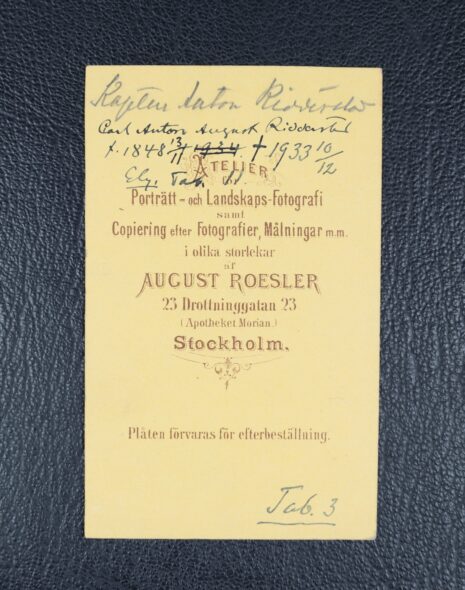 Kapten Anton Ridderstad
Carl Anton August Ridderstad
f. 1848 13/11 1934. † 1933 10/12
Elg. Tab. 11
ATELIER
för
Porträtt- och Landskaps-Fotografi
samt
Copiering efter Fotografier, Målningar m.m.
i olika storlekar
af
AUGUST ROESLER
23 Drottninggatan 23
(Apotheket Morian.)
Stockholm.
Plåten förvaras för efterbeställning.
Tab. 3